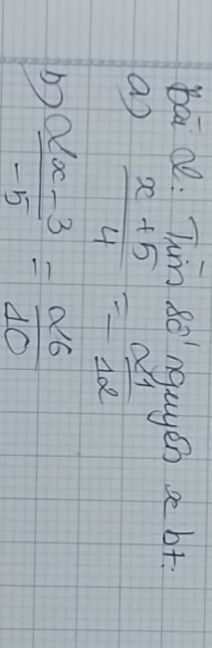 Bài 2: Tìm số nguyên x bt:
a) x + 5 / 4 = - 21 / 12
b) 2x - 3 / -5 = 26 / 10